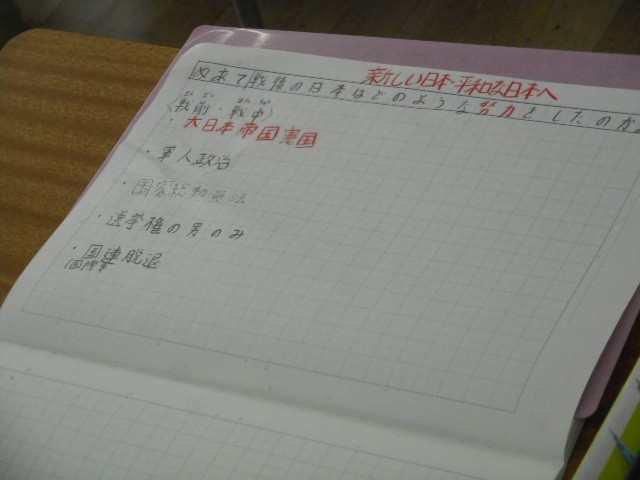 新しい日本・平和な日本へ
めあて 戦後の日本はどのような努力をしたのか。
せんぜん せんちゅう
〈戦前・戦中〉
・大日本帝国憲国
・軍人政治
・国家総動員法
・選挙権の男のみ
・国連脱退